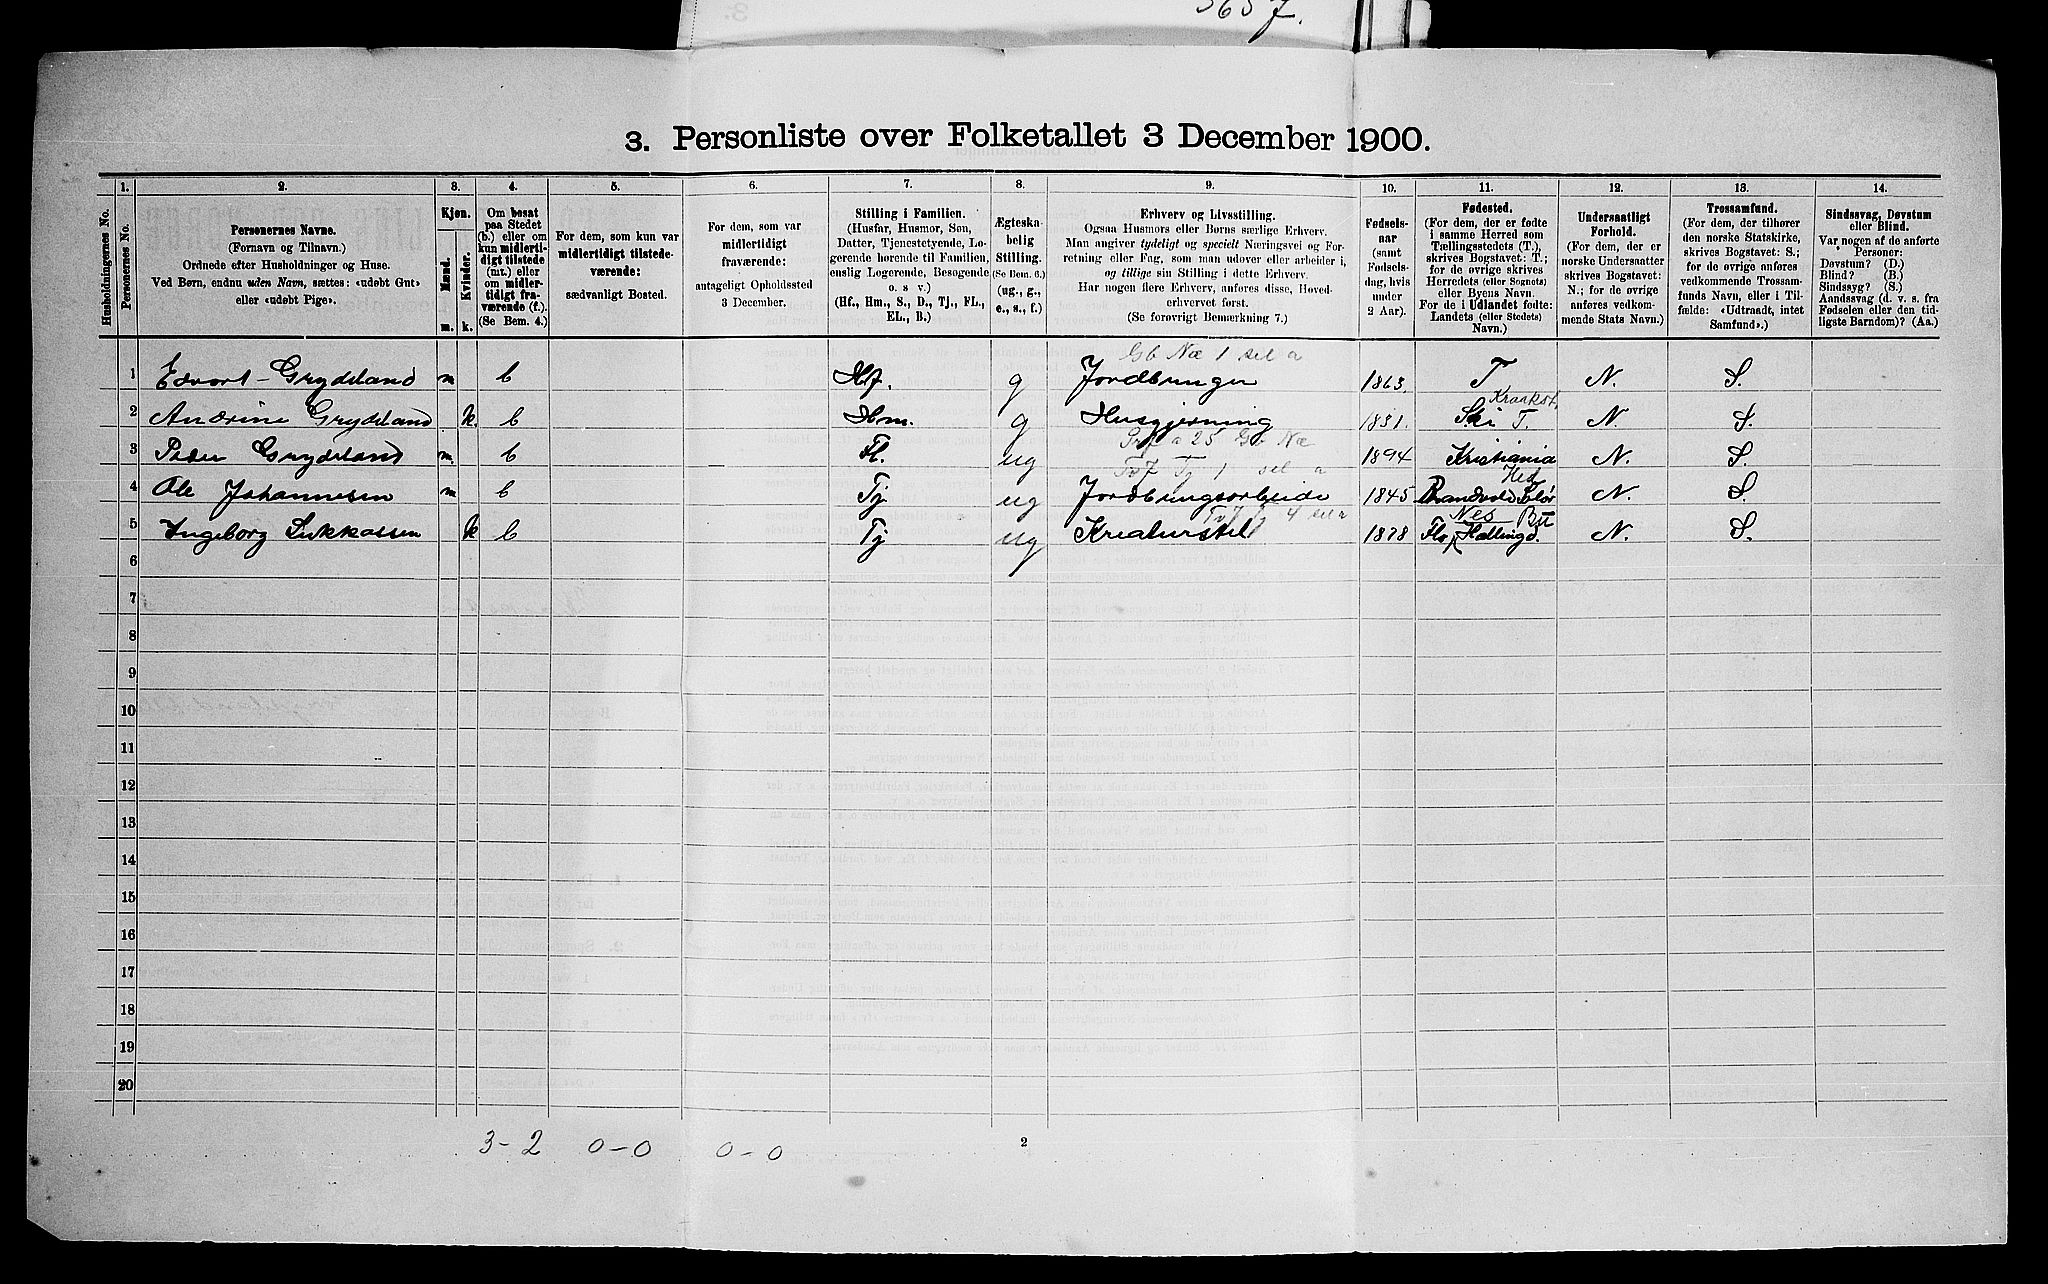 3657.
3. Personliste over Folketallet 3 December 1900.
1. 2. 3. 4. 5. 6. 7. 8. 9. 10. 11. 12. 13. 14.
Husholdningernes No.
Personernes No.
Personernes Navne.
(Fornavn og Tilnavn.)
Ordnede efter Husholdninger og Huse.
Ved Børn, endnu uden Navn, sættes: «udøbt Gut»
eller «udøbt Pige».
Kjøn.
Mænd.
Kvinder.
m. k.
Om bosat
paa Stedet
(b.) eller om
kun midlerti-
digt tilstede
(mt.) eller
om midler-
tidigt fra-
værende (f.).
(Se Bem. 4.)
For dem, som kun var
midlertidigt tilstede-
værende:
sædvanligt Bosted.
For dem, som var
midlertidigt
fraværende:
antageligt Opholdssted
3 December.
Stilling i Familien.
(Husfar, Husmor, Søn,
Datter, Tjenestetyende, Lo-
gerende hørende til Familien,
enslig Logerende, Besøgende
o. s. v.)
(Hf., Hm., S., D., Tj., FL.,
EL., B.)
Ægteska-
belig
Stilling.
(Se Bem. 6.)
(ug., g.,
e., s., f.)
Erhverv og Livsstilling.
Ogsaa Husmors eller Børns særlige Erhverv.
Man angiver tydeligt og specielt Næringsvei og For-
retning eller Fag, som man udøver eller arbeider i,
og tillige sin Stilling i dette Erhverv.
Har nogen flere Erhverv, anføres disse, Hoved-
erhvervet først.
(Se forøvrigt Bemærkning 7.)
Fødsels-
aar
(samt
Fødsels-
dag, hvis
under
2 Aar).
Fødested.
(For dem, der er fødte
i samme Herred som
Tællingsstedets (T.),
skrives Bogstavet: T.;
for de øvrige skrives
Herredets (eller Sognets)
eller Byens Navn.
For de i Udlandet fødte:
Landets (eller Stedets)
Navn.)
Undersaatligt
Forhold.
(For dem, der er
norske Undersaatter
skrives Bogstavet:
N.; for de øvrige
anføres vedkom-
mende Stats Navn.)
Trossamfund.
(For dem, der tilhører
den norske Statskirke,
skrives Bogstavet: S.;
for de øvrige anføres
vedkommende Trossam-
funds Navn, eller i Til-
fælde: «Udtraadt, intet
Samfund».)
Sindssvag, Døvstum
eller Blind.
Var nogen af de anførte
Personer:
Døvstum? (D.)
Blind? (B.)
Sindssyg? (S.)
Aandssvag (d. v. s. fra
Fødselen eller den tid-
ligste Barndom)? (Aa.)
Gb Næ 1 sel a
1 Edvart Grydeland m b Hf. g Jordbruger 1863 T N. S.
Kraakst.
2 Andrine Grydeland k. b Hm. g Husgjerning 1851. Ski T. N. S.
3 Peder Grydeland m. b Fl. ug 1894 Kristiania N. S.
4 Ole Johannesen m b Tj ug Jordbrugsarbeide 1845 Brandvold Solør N. S.
Nes
5 Ingeborg Lukkassen k b Tj ug Kreaturstel 1878 Flo Hallingd. N. S.
6
7
8
9
10
11
12
13
14
15
16
17
18
19
20
3-2 0-0 0-0
2